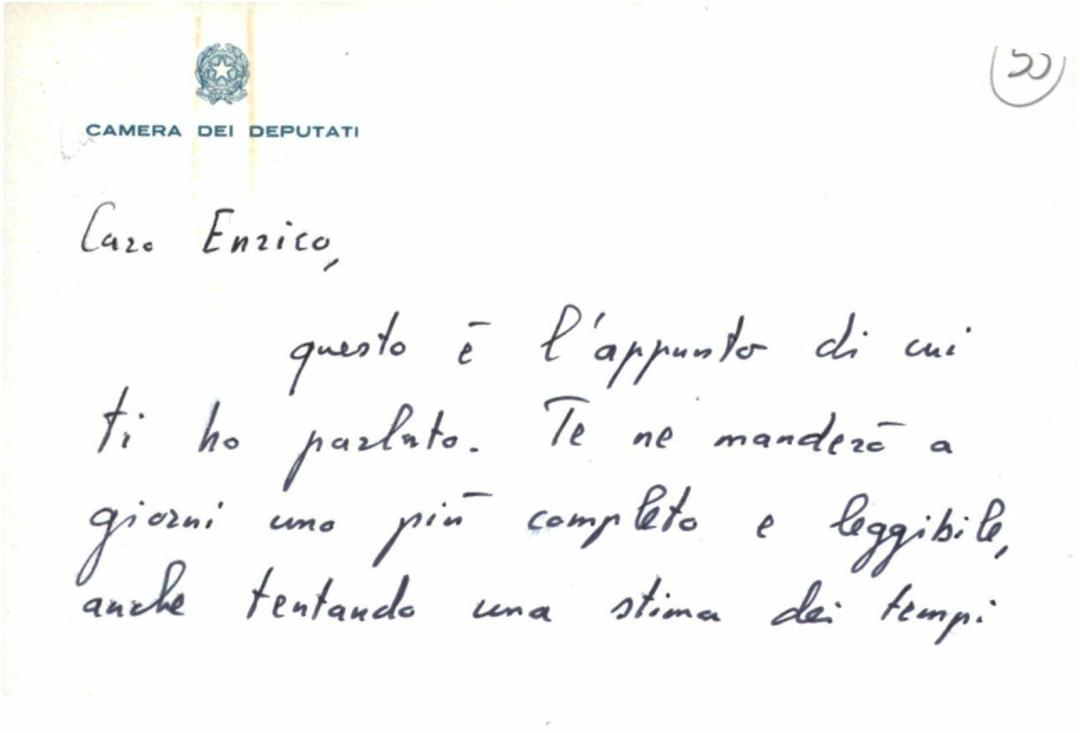 CAMERA DEI DEPUTATI
Caro Enrico,
questo è l'appunto di cui
ti ho parlato. Te ne manderò a
giorni uno più completo e leggibile,
anche tentando una stima dei tempi